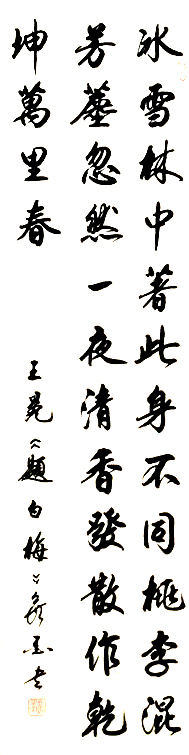 冰雪林中著此身不同桃李混
芳塵忽然一夜清香發散作乾
坤萬里春
王冕《題白梅》